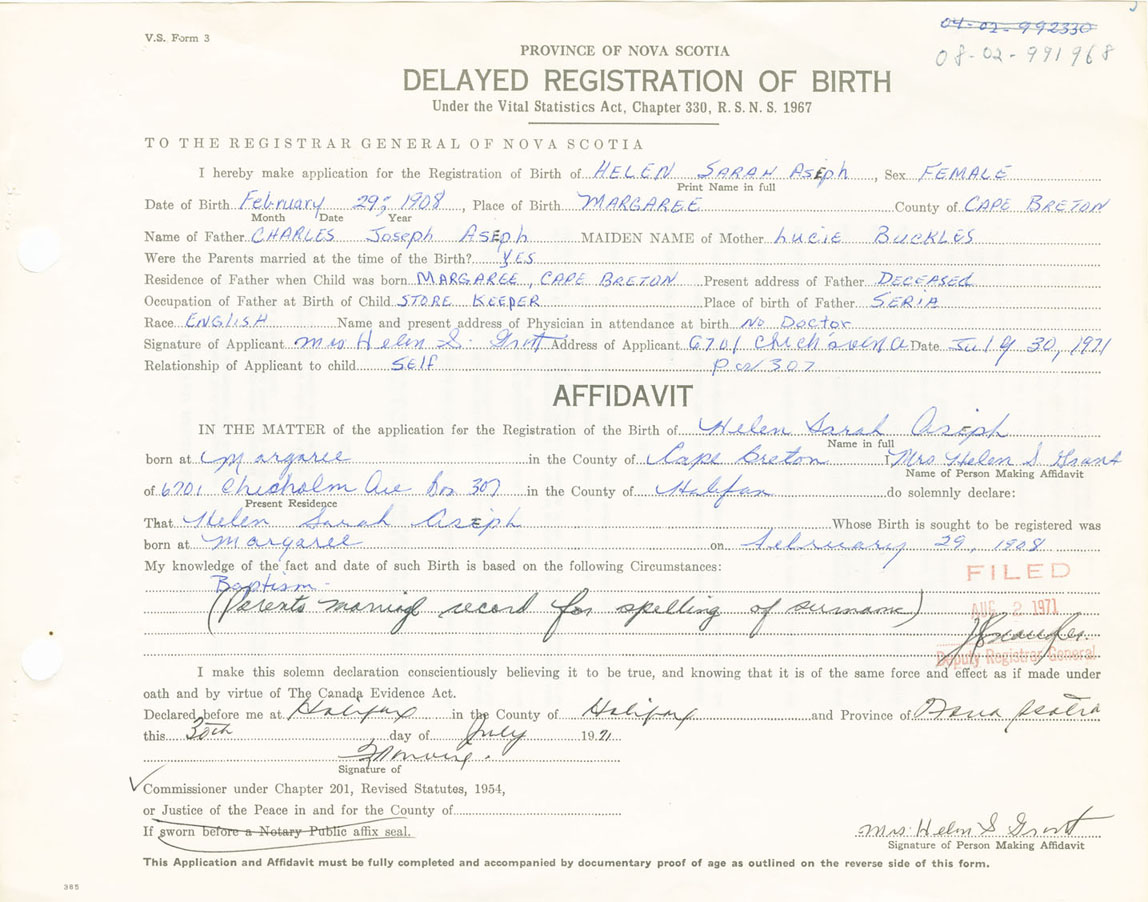 V.S. Form 3
04-02-992330
08-02-991968
PROVINCE OF NOVA SCOTIA
DELAYED REGISTRATION OF BIRTH
Under the Vital Statistics Act, Chapter 330, R. S. N. S. 1967
TO THE REGISTRAR GENERAL OF NOVA SCOTIA
I hereby make application for the Registration of Birth of HELEN SARAH ASEph, Sex FEMALE
Print Name in full
Date of Birth February 29, 1908, Place of Birth MARGAREE County of CAPE BRETON
Month Date Year
Name of Father CHARLES Joseph ASEph MAIDEN NAME of Mother Lucie BUCKLES
Were the Parents married at the time of the Birth? YES
Residence of Father when Child was born MARGAREE, CAPE BRETON Present address of Father DECEASED
Occupation of Father at Birth of Child STORE KEEPER Place of birth of Father SERIA
Race ENGLISH Name and present address of Physician in attendance at birth No Doctor
Signature of Applicant Mrs Helen S. Grant Address of Applicant 6701 Date July 30, 1971
Relationship of Applicant to child SElf 307
AFFIDAVIT
IN THE MATTER of the application for the Registration of the Birth of Helen Sarah Aseph
Name in full
born at Margaree in the County of Cape Breton I Mrs Helen S Grant
Name of Person Making Affidavit
of 6701 Chisholm Ave Box 307 in the County of Halifax do solemnly declare:
Present Residence
That Helen Sarah Aseph Whose Birth is sought to be registered was
born at Margaree on February 29, 1908
My knowledge of the fact and date of such Birth is based on the following Circumstances:
Baptism.
(Parents marriage record for spelling of surname)
FILED
AUG 2 1971
Deputy Registrar General
I make this solemn declaration conscientiously believing it to be true, and knowing that it is of the same force and effect as if made under
oath and by virtue of The Canada Evidence Act.
Declared before me at Halifax in the County of Halifax and Province of Nova Scotia
this 30th day of July 1971
Signature of
Commissioner under Chapter 201, Revised Statutes, 1954,
or Justice of the Peace in and for the County of
If sworn before a Notary Public affix seal.
Mrs. Helen S Grant
Signature of Person Making Affidavit
This Application and Affidavit must be fully completed and accompanied by documentary proof of age as outlined on the reverse side of this form.
365